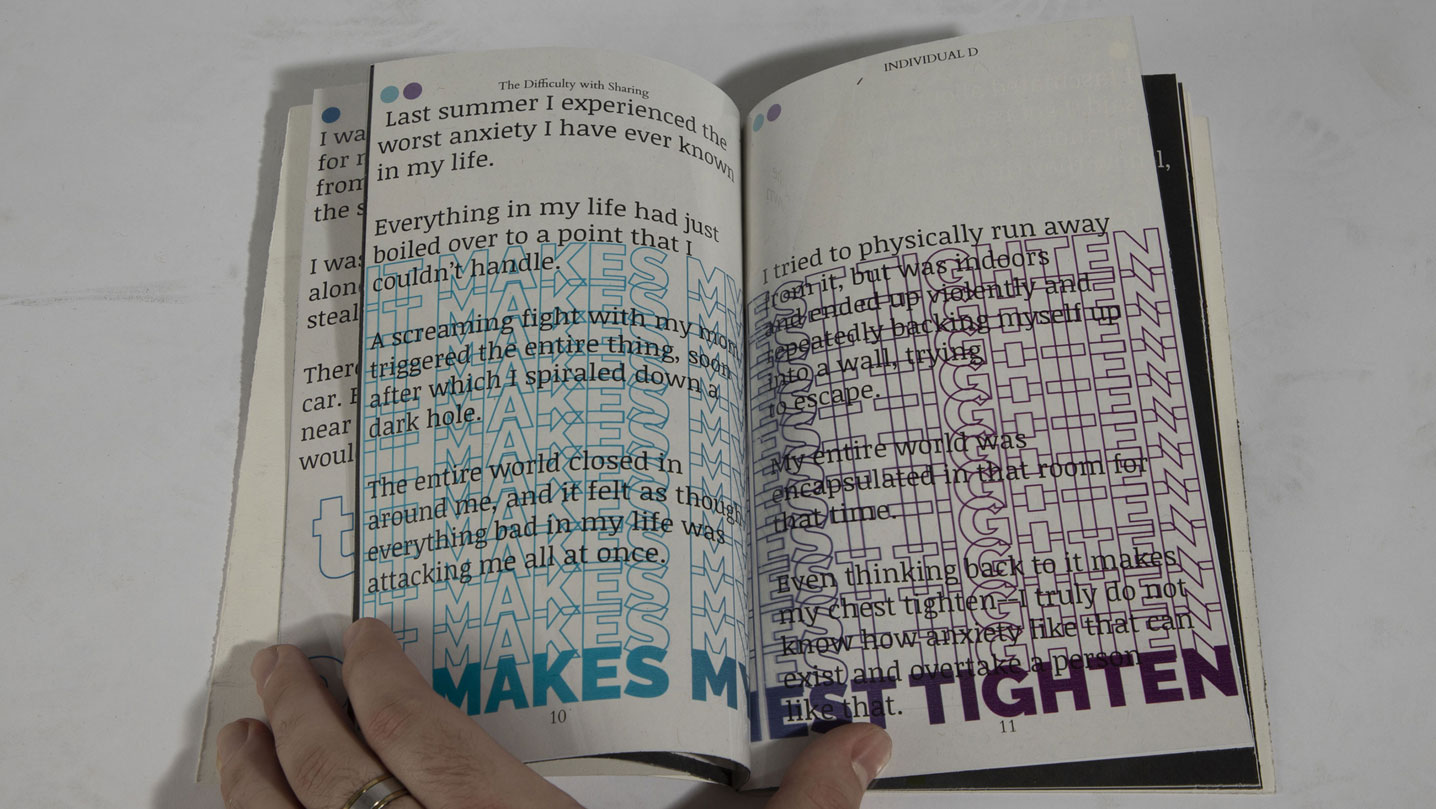 I wa
for
from
the s
I was
alon
steal
Ther
car.
near
woul
t
The Difficulty with Sharing
Last summer I experienced the
worst anxiety I have ever known
in my life.
Everything in my life had just
boiled over to a point that I
couldn't handle.
A screaming fight with my mom
triggered the entire thing, soon
after which I spiraled down a
dark hole.
The entire world closed in
around me, and it felt as though
everything bad in my life was
attacking me all at once.
MAKES MY
10
INDIVIDUAL D
I tried to physically run away
from it, but was indoors
and ended up violently and
repeatedly backing myself up
into a wall, trying
to escape.
My entire world was
encapsulated in that room for
that time.
Even thinking back to it makes
my chest tighten—I truly do not
know how anxiety like that can
exist and overtake a person
like that.
HEST TIGHTEN
11
l,